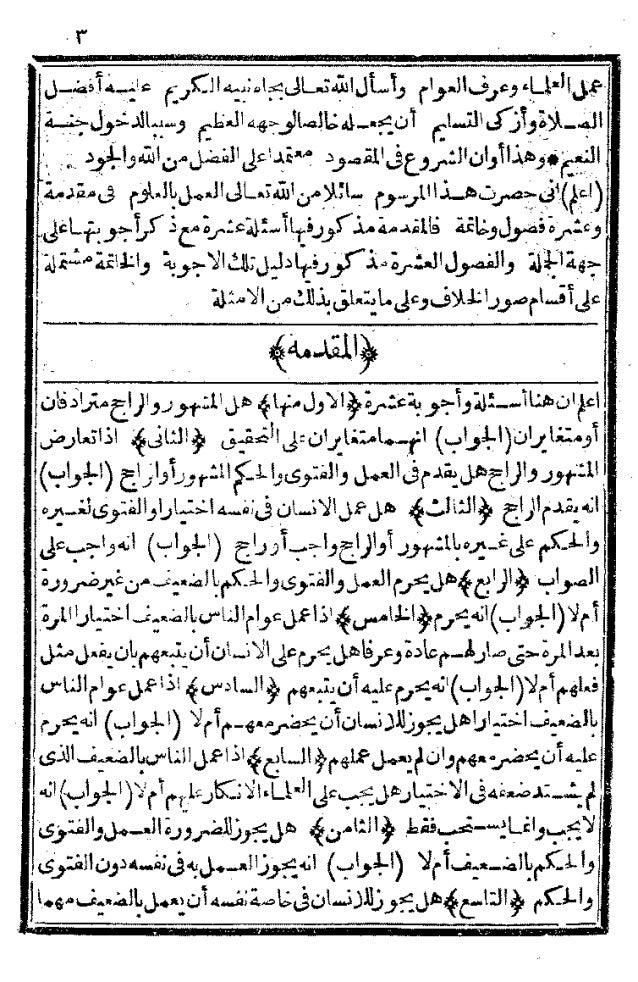 ٣
عمل العلماء وعرف العوام وأسأل الله تعالى بجاه نبيه الكريم عليه أفضل
الصلاة وأزكى التسليم أن يجعله خالصا لوجهه العظيم وسببا لدخول جنة
النعيم * وهذا أوان الشروع فى المقصود معتمدا على الفضل من الله والجود
(اعلم) انى حصرت هذا المرسوم سائلا من الله تعالى العمل بالعلوم فى مقدمة
وعشرة فصول وخاتمة فالمقدمة مذكور فيها أسئلة عشرة مع ذكر أجوبتها على
جهة الجملة والفصول العشرة مذكور فيها دليل تلك الاجوبة والخاتمة مشتملة
على أقسام صور الخلاف وعلى ما يتعلق بذلك من الامثلة
﴿المقدمه﴾
اعلم ان هنا أسئلة وأجوبة عشرة ﴿الاول منها﴾ هل المشهور والراجح مترادفان
أو متغايران (الجواب) انهما متغايران على التحقيق ﴿الثانى﴾ اذا تعارض
المشهور والراجح هل يقدم فى العمل والفتوى والحكم المشهور أو الراجح (الجواب)
انه يقدم الراجح ﴿الثالث﴾ هل عمل الانسان فى نفسه اختيارا والفتوى لغيره
والحكم على غيره بالمشهور أو الراجح واجب أو راجح (الجواب) انه واجب على
الصواب ﴿الرابع﴾ هل يحرم العمل والفتوى والحكم بالضعيف من غير ضرورة
أم لا (الجواب) انه يحرم ﴿الخامس﴾ اذا عمل عوام الناس بالضعيف اختيارا المرة
بعد المرة حتى صار لهم عادة وعرفا هل يحرم على الانسان أن يتبعهم بان يفعل مثل
فعلهم أم لا (الجواب) انه يحرم عليه أن يتبعهم ﴿السادس﴾ اذا عمل عوام الناس
بالضعيف اختيارا هل يجوز للانسان أن يحضر معهم أم لا (الجواب) انه يحرم
عليه أن يحضر معهم وان لم يعمل عملهم ﴿السابع﴾ اذا عمل الناس بالضعيف الذى
لم يشتد ضعفه فى الاختيار هل يجب على العلماء الانكار عليهم أم لا (الجواب) انه
لا يجب وانما يستحب فقط ﴿الثامن﴾ هل يجوز للضرورة العمل والفتوى
والحكم بالضعيف أم لا (الجواب) انه يجوز العمل به فى نفسه دون الفتوى
والحكم ﴿التاسع﴾ هل يجوز للانسان فى خاصة نفسه أن يعمل بالضعيف مهما